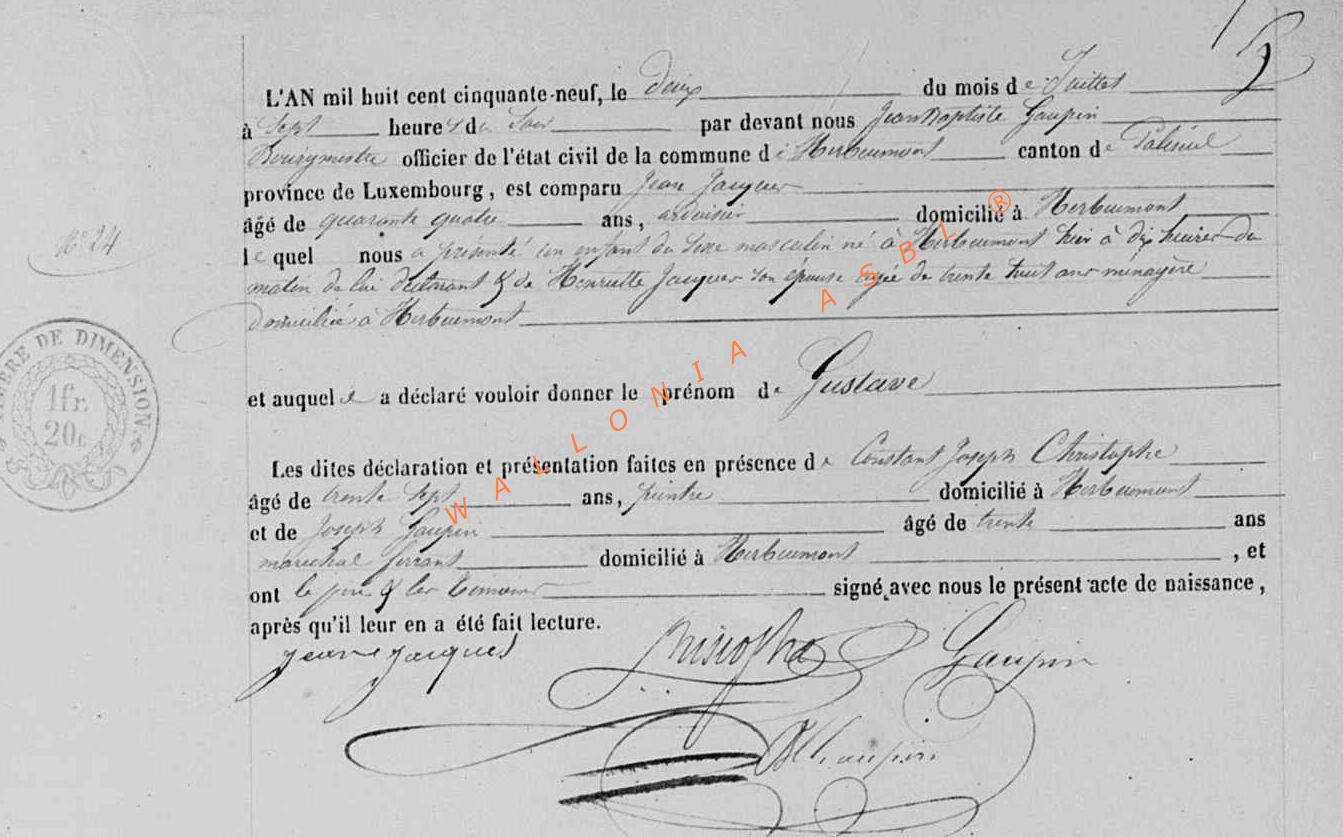 L'AN mil huit cent cinquante-neuf, le Deux du mois de Juillet
à Sept heures du Soir par devant nous Jean Baptiste Gaupin
Bourgmestre officier de l'état civil de la commune de Herbeumont canton de Paliseul
province de Luxembourg, est comparu Jean Jacques
âgé de quarante quatre ans, ardoisier domicilié à Herbeumont
N° 24
le quel nous a présenté un enfant du sexe masculin né à Herbeumont hier à dix heures du
matin de lui déclarant & de Henriette Jacques son épouse agée de trente huit ans ménagère
domiciliée à Herbeumont
TIMBRE DE DIMENSION
1 fr.
20c
et auquel a déclaré vouloir donner le prénom de Gustave
Les dites déclaration et présentation faites en présence de Constant Joseph Christophe
âgé de trente sept ans, peintre domicilié à Herbeumont
et de Joseph Gaupin âgé de trente ans
maréchal ferrant domicilié à Herbeumont, et
ont le père & les témoins signé avec nous le présent acte de naissance,
après qu'il leur en a été fait lecture.
Jean Jacques Christophe Gaupin
Gaupin
WALLONIA ASBL ®